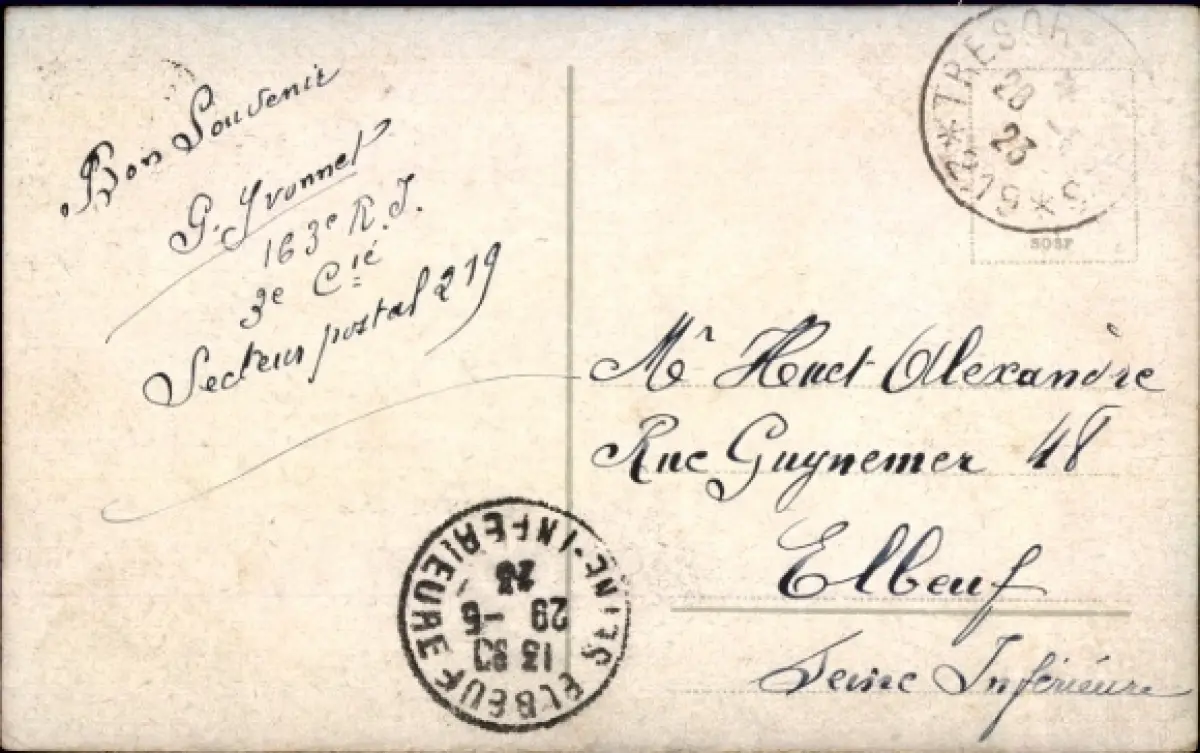 Bon Souvenir
G. Yvonnet
163e R. I.
3e Cie
Secteur postal 219
TRESOR
28
23
SOSF
Mr Huet Alexandre
Rue Guynemer 48
Elbeuf
Seine Inférieure
ELBEUF
SEINE-INFERIEURE
13
29 - 5
23